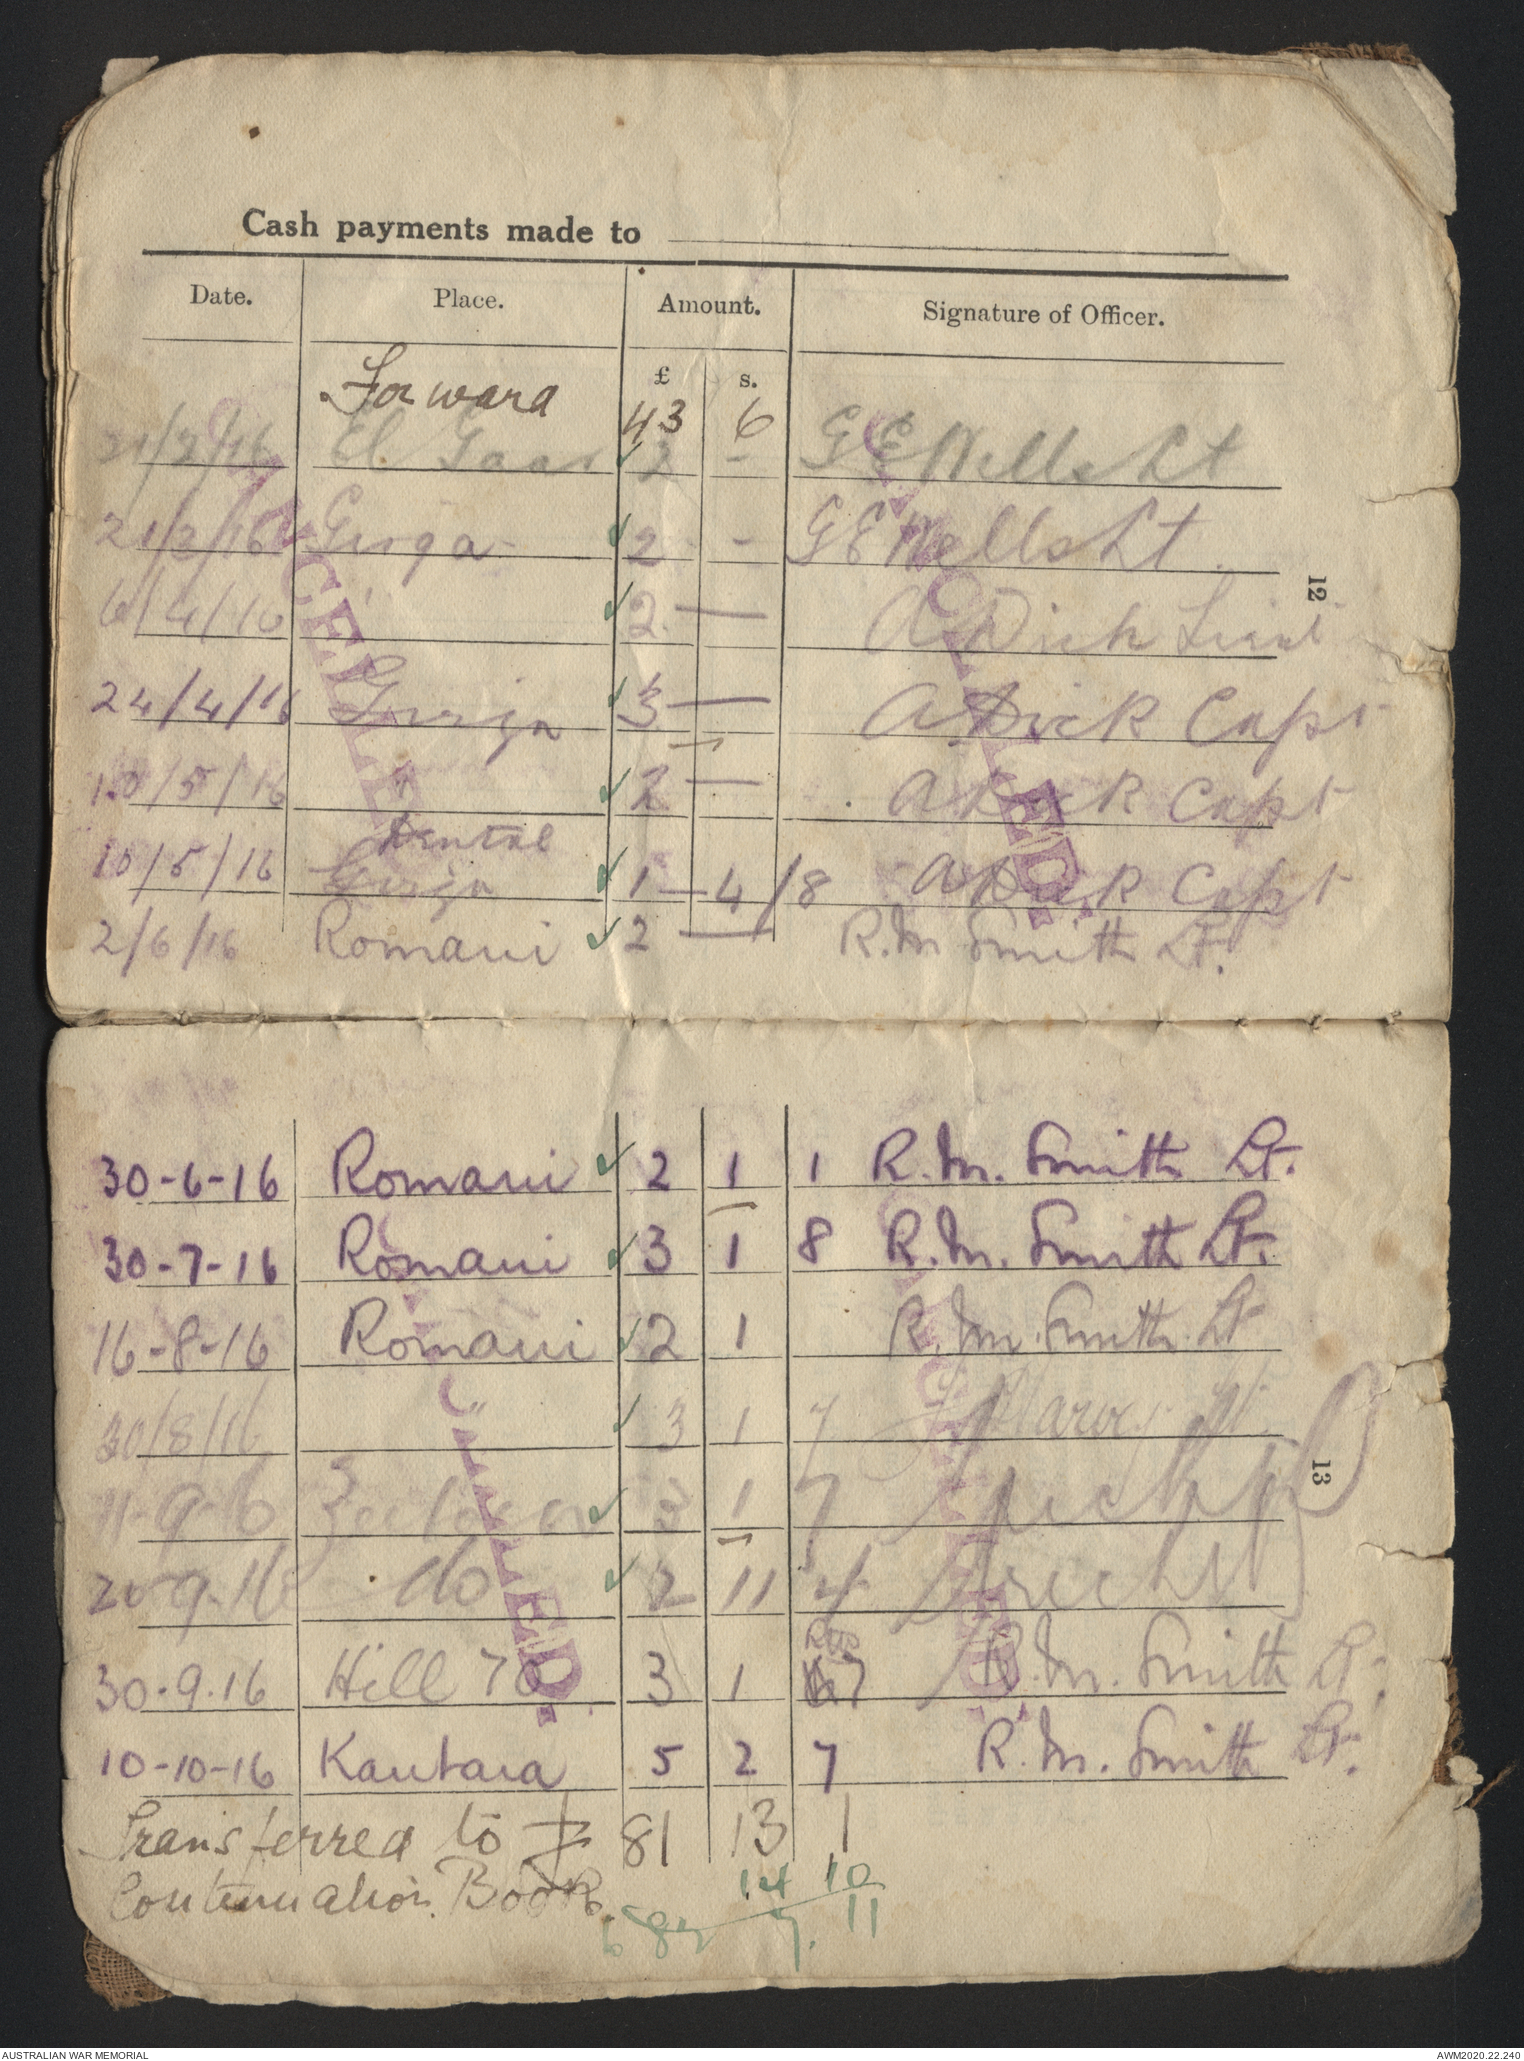 Cash payments made to
Date. Place. Amount. Signature of Officer.
£ s.
Forward 43 6
21/2/16 El 2 - G E Wells Lt
21/2/16 Girga 2 - G E Wells Lt
6/4/16 " 2 — A Dick Lieut
24/4/16 Girga 3 — A Dick Capt
10/5/16 " 2 — A Dick Capt
Dental
10/5/16 Girga 1 — 4/8 A Dick Capt
2/6/16 Romani 2 — R.M Smith Lt.
CANCELLED.
CANCELLED.
12
30-6-16 Romani 2 1 1 R.M. Smith Lt.
30-7-16 Romani 3 1 8 R.M. Smith Lt.
16-8-16 Romani 2 1 R.M. Smith Lt
30/8/16 " 3 1 7
11-9-16 3 1 7
20-9-16 do 2 11 4
30.9.16 Hill 70 3 1 7 R.M. Smith Lt.
10-10-16 Kantara 5 2 7 R.M. Smith Lt.
CANCELLED.
CANCELLED.
13
Transferred to 81 13 1
Continuation Book.
14 10
7. 11
AUSTRALIAN WAR MEMORIAL
AWM2020.22.240